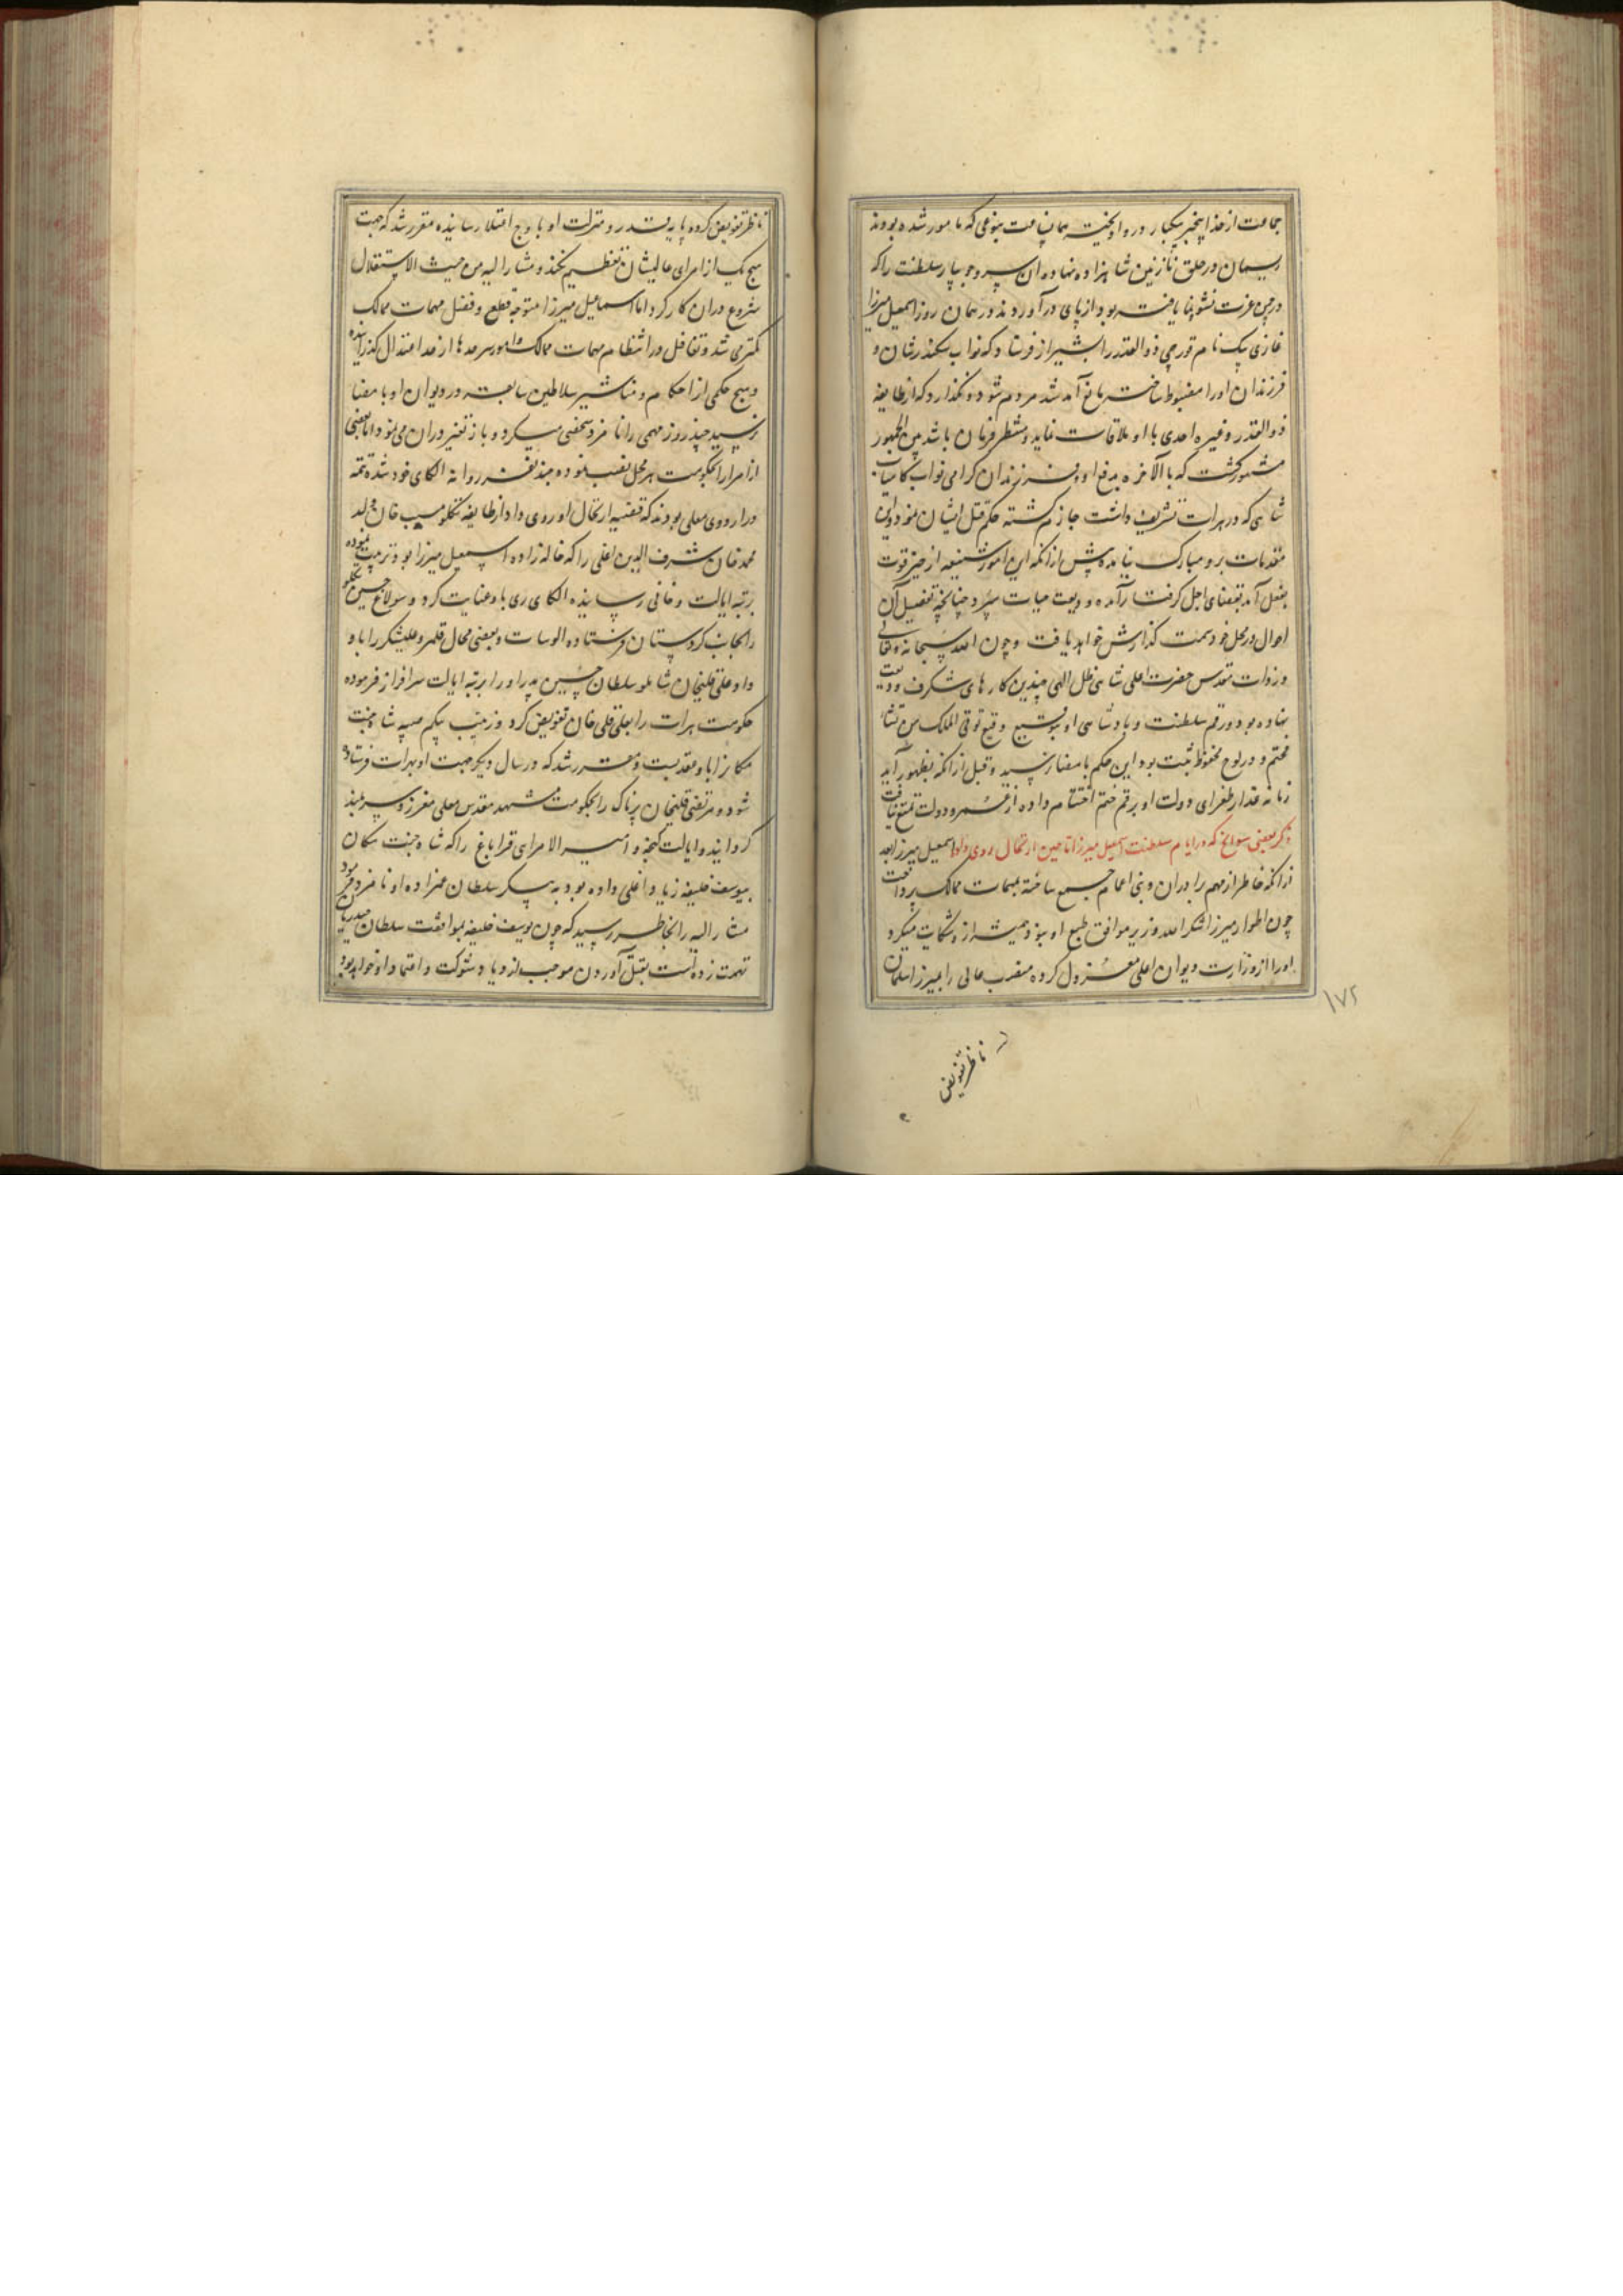 جماعت از خدا بیخبر بیکبار در او آویخته همان جماعت بنوعی که مامور شده بودند
ریسمان در حلق نازنین شاهزاده نهاده آن سرو جویبار سلطنت را که
در چمن عزت نشو و نما یافته بود از پای در آوردند و در همان روز اسمعیل میرزا
غازی بیک نام قورچی ذوالقدر را بشیراز فرستاد که نواب سکندر شان و
فرزندان او را مضبوط ساخته مانع آمد شد مردم شود و نگذارد که از طایفه
ذوالقدر و غیره احدی با او ملاقات نماید و منتظر فرمان باشد بین الجمهور
مشهور گشت که بالاخره بدفع او و فرزندان گرامی نواب کامیاب
شاهی که در هرات تشریف داشت جازم گشته حکم قتل ایشان نمود و این
مقدمات برو مبارک نیامده پیش از آنکه این امور شنیعه از حیز قوت
بفعل آمد بمقتضای اجل گرفتار آمده ودیعت حیات سپرد چنانچه تفصیل آن
احوال در محل خود سمت گذارش خواهد یافت و چون الله سبحانه و تعالی
در ذات مقدس حضرت اعلی شاهی ظل الهی چندین کارهای شگرف ودیعت
نهاده بود و رقم سلطنت و پادشاهی او بتوقیع وقیع توتی الملک من تشاء
مختم و در لوح محفوظ ثبت بود این حکم بامضا نرسید و قبل از آنکه بظهور آید
زمانه غدار طغرای دولت او برقم ختم اختتام داده از عمر و دولت تمتع نیافت
ذکر بعضی سوانح که در ایام سلطنت اسمعیل میرزا تا حین ارتحال روی داد اسمعیل میرزا بعد
از آنکه خاطر از مهم برادران و بنی اعمام جمع ساخته بمهمات ممالک پرداخت
چون اطوار میرزا شکرالله وزیر موافق طبع او نبود همیشه از و شکایت میکرد
او را از وزارت دیوان اعلی معزول کرده منصب عالی را بمیرزا سلمان
۱۷۲
ناظر تفویض
ناظر تفویض کرده پایه قدر و منزلت او باوج اعتلا رسانیده مقرر شد که جهت
هیچ یک از امرای عالیشان تعظیم نکند و مشار الیه من حیث الاستقلال
شروع در آن کار کرد اما اسماعیل میرزا متوجه قطع و فصل مهمات ممالک
کمتر می شد و تغافل در انتظام مهمات ممالک و امور سرحدها از حد اعتدال گذرانیده
و هیچ حکمی از احکام و مناشیر سلاطین سابقه در دیوان او بامضا
نرسید چند روز مهمی را نامزد شخصی میکرد و باز تغییر در آن می نمود اما بعضی
از امرا را بحکومت هر محل نصب نموده چند نفر روانه الکای خود شده تتمه
در اردوی معلی بودند که قضیه ارتحال او روی داد از طایفه تکلو مسیب خان ولد
محمد خان شرف الدین اغلی را که خاله زاده اسمعیل میرزا بود تربیت نموده
برتبه ایالت و خانی رسانیده الکای ری باو عنایت کرد و سولاغ حسین تکلو
را بجانب کردستان فرستاده الوسات و بعضی محال قلمرو علیشکر را باو
داد و علی قلیخان شاملو سلطان حسین پدر او را برتبه ایالت سرافراز فرموده
حکومت هرات را بعلی قلی خان تفویض کرد و زینب بیگم صبیه شاه جنت
مکان را باو عقد بست و مقرر شد که در سال دیگر جهت او بهرات فرستاده
شود و مرتضی قلیخان پرناک را بحکومت مشهد مقدس معلی معزز و سربلند
گردانید و ایالت گنجه و امیر الامرای قراباغ را که شاه جنت مکان
بیوسف خلیفه زیاد اغلی داده بود به پیکر سلطان عمزاده او نامزد فرمود
مشار الیه را بخاطر رسید که چون یوسف خلیفه بموافقت سلطان حیدریان
تهمت زده است بقتل آوردن موجب ازدیاد شوکت و اعتماد او خواهد بود